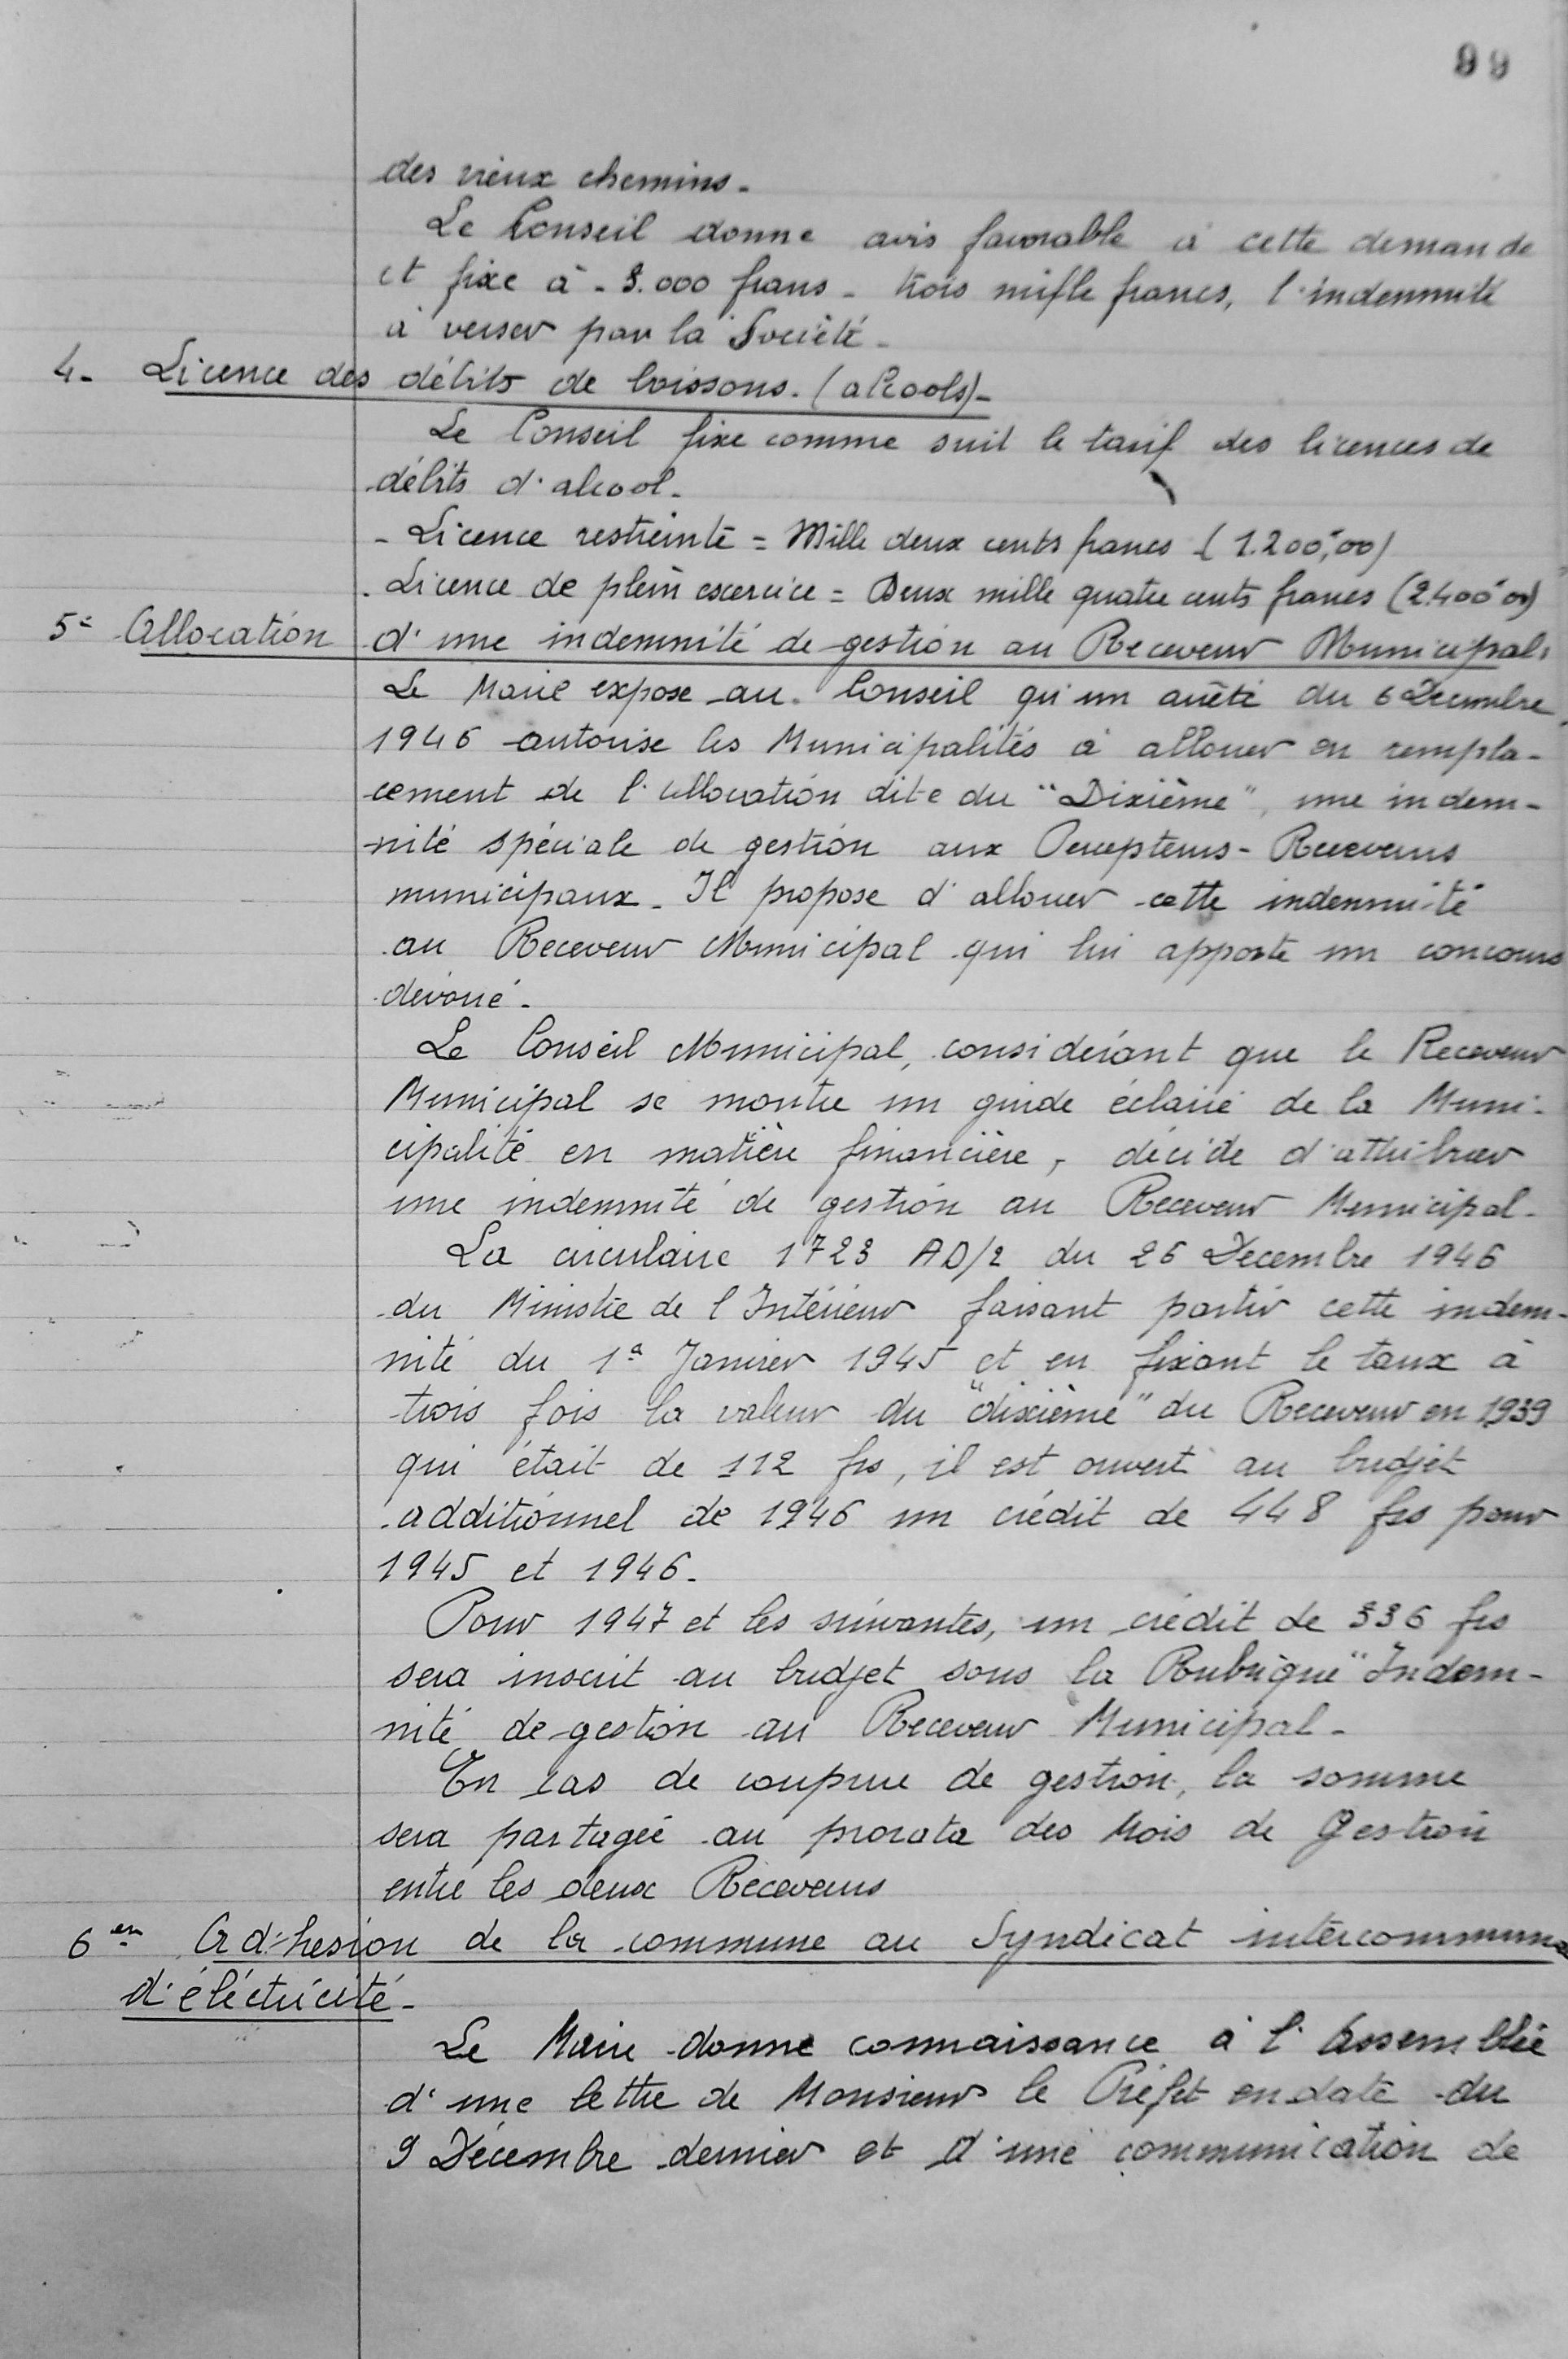 99
des vieux chemins.
Le Conseil donne avis favorable à cette demande
et fixe à - 3.000 frans - trois mille francs, l'indemnité
à verser par la Société.
4. Licence des débits de boissons. (alcools)-
Le Conseil fixe comme suit le tarif des licences de
débits d'alcool.
- Licence restreinte = Mille deux cents francs (1.200,00)
. Licence de plein exercice = Deux mille quatre cents francs (2.400,00)
5e Allocation d'une indemnité de gestion au Receveur Municipal.
Le Maire expose au Conseil qu'un arrêté du 6 Decembre
1946 autorise les Municipalités à allouer en rempla-
cement de l'allocation dite du "Dixième", une indem-
nité spéciale de gestion aux Percepteurs - Receveurs
municipaux. Il propose d'allouer cette indemnité
au Receveur Municipal qui lui apporte un concours
dévoué.
Le Conseil Municipal, considérant que le Receveur
Municipal se montre un guide éclairé de la Muni-
cipalité en matière financière, décide d'attribuer
une indemnité de gestion au Receveur Municipal.
La circulaire 1723 AD/2 du 26 Decembre 1946
du Ministre de l'Intérieur faisant partir cette indem-
nité du 1er Janvier 1945 et en fixant le taux à
trois fois la valeur du "dixième" du Receveur en 1939
qui était de 112 frs, il est ouvert au budjet
additionnel de 1946 un crédit de 448 frs pour
1945 et 1946.
Pour 1947 et les suivantes, un crédit de 336 frs
sera inscrit au budjet sous la Rubrique "Indem-
nité de gestion au Receveur Municipal.
En cas de coupure de gestion, la somme
sera partagée au prorata des Mois de Gestion
entre les deux Receveurs
6em Adhésion de la commune au Syndicat intercommunal
d'éléctricité.
Le Maire donne connaissance à l'Assemblée
d'une lettre de Monsieur le Préfet en date du
9 Décembre dernier et d'une communication de